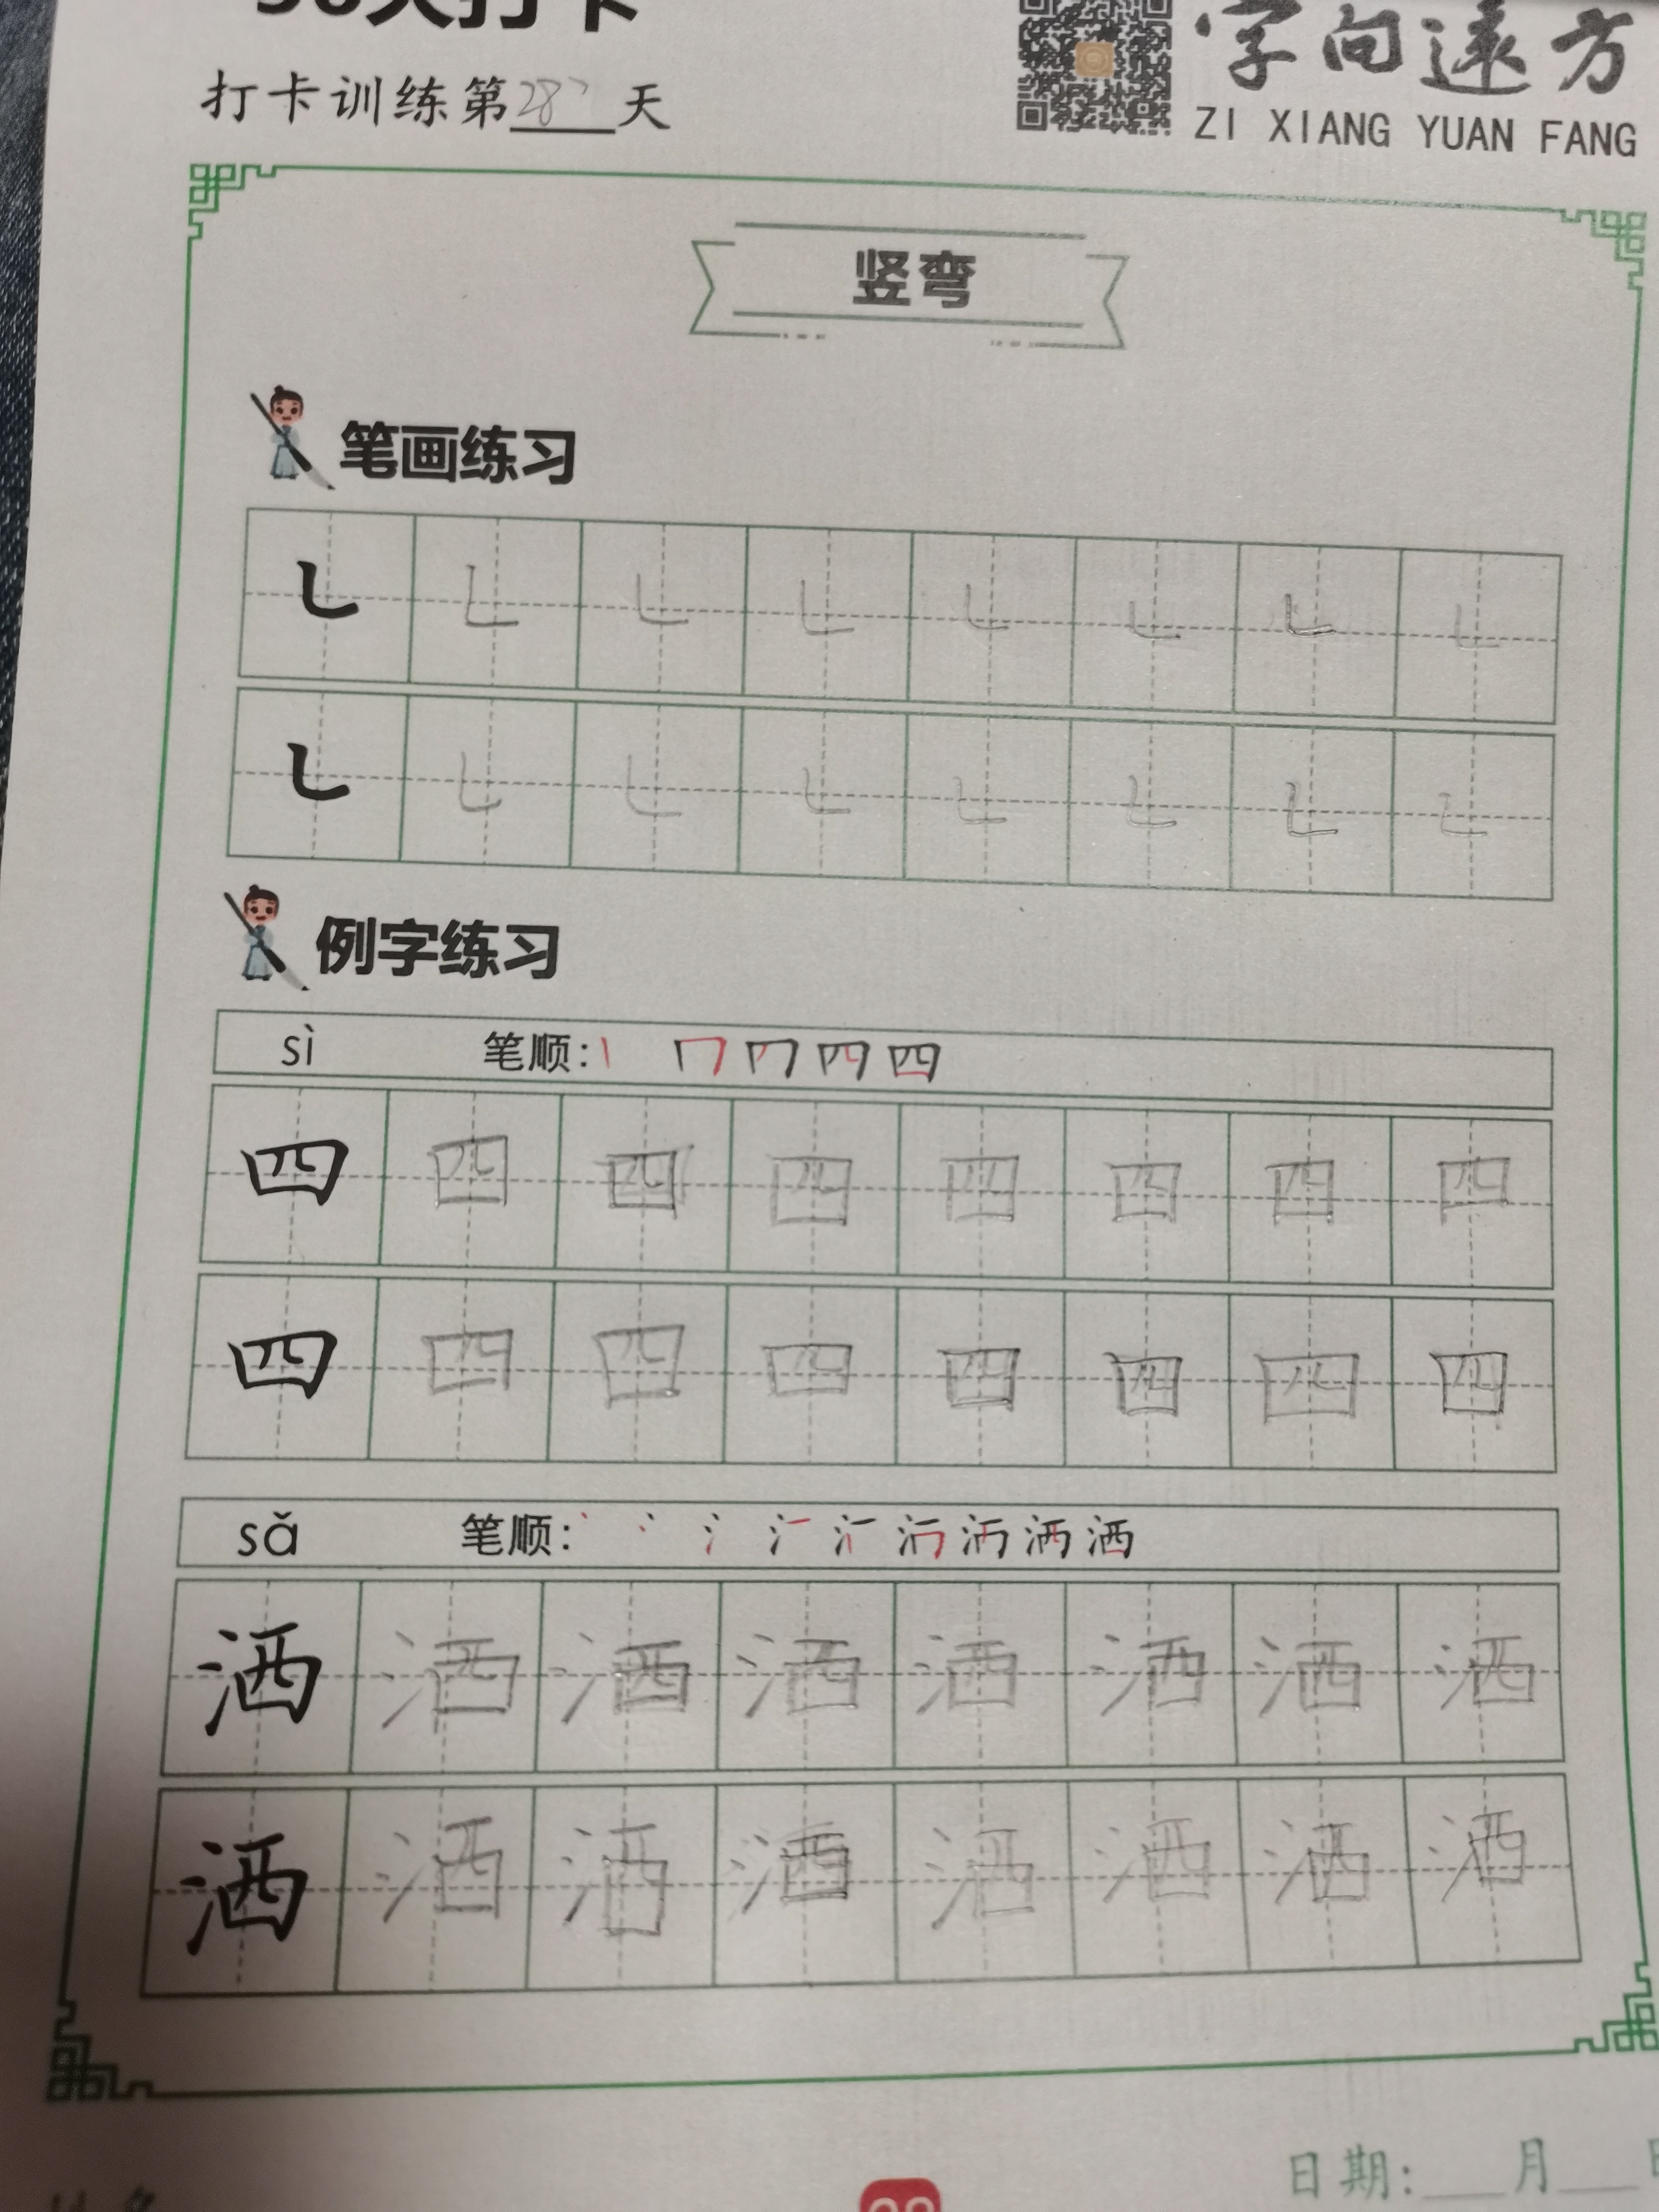 打卡训练第28天
字向远方
ZI XIANG YUAN FANG
竖弯
笔画练习
例字练习
sì 笔顺:
四 四 四 四 四 四 四 四
四 四 四 四 四 四 四 四
sǎ 笔顺:
洒 洒 洒 洒 洒 洒 洒 洒
洒 洒 洒 洒 洒 洒 洒 洒
日期:___月___日